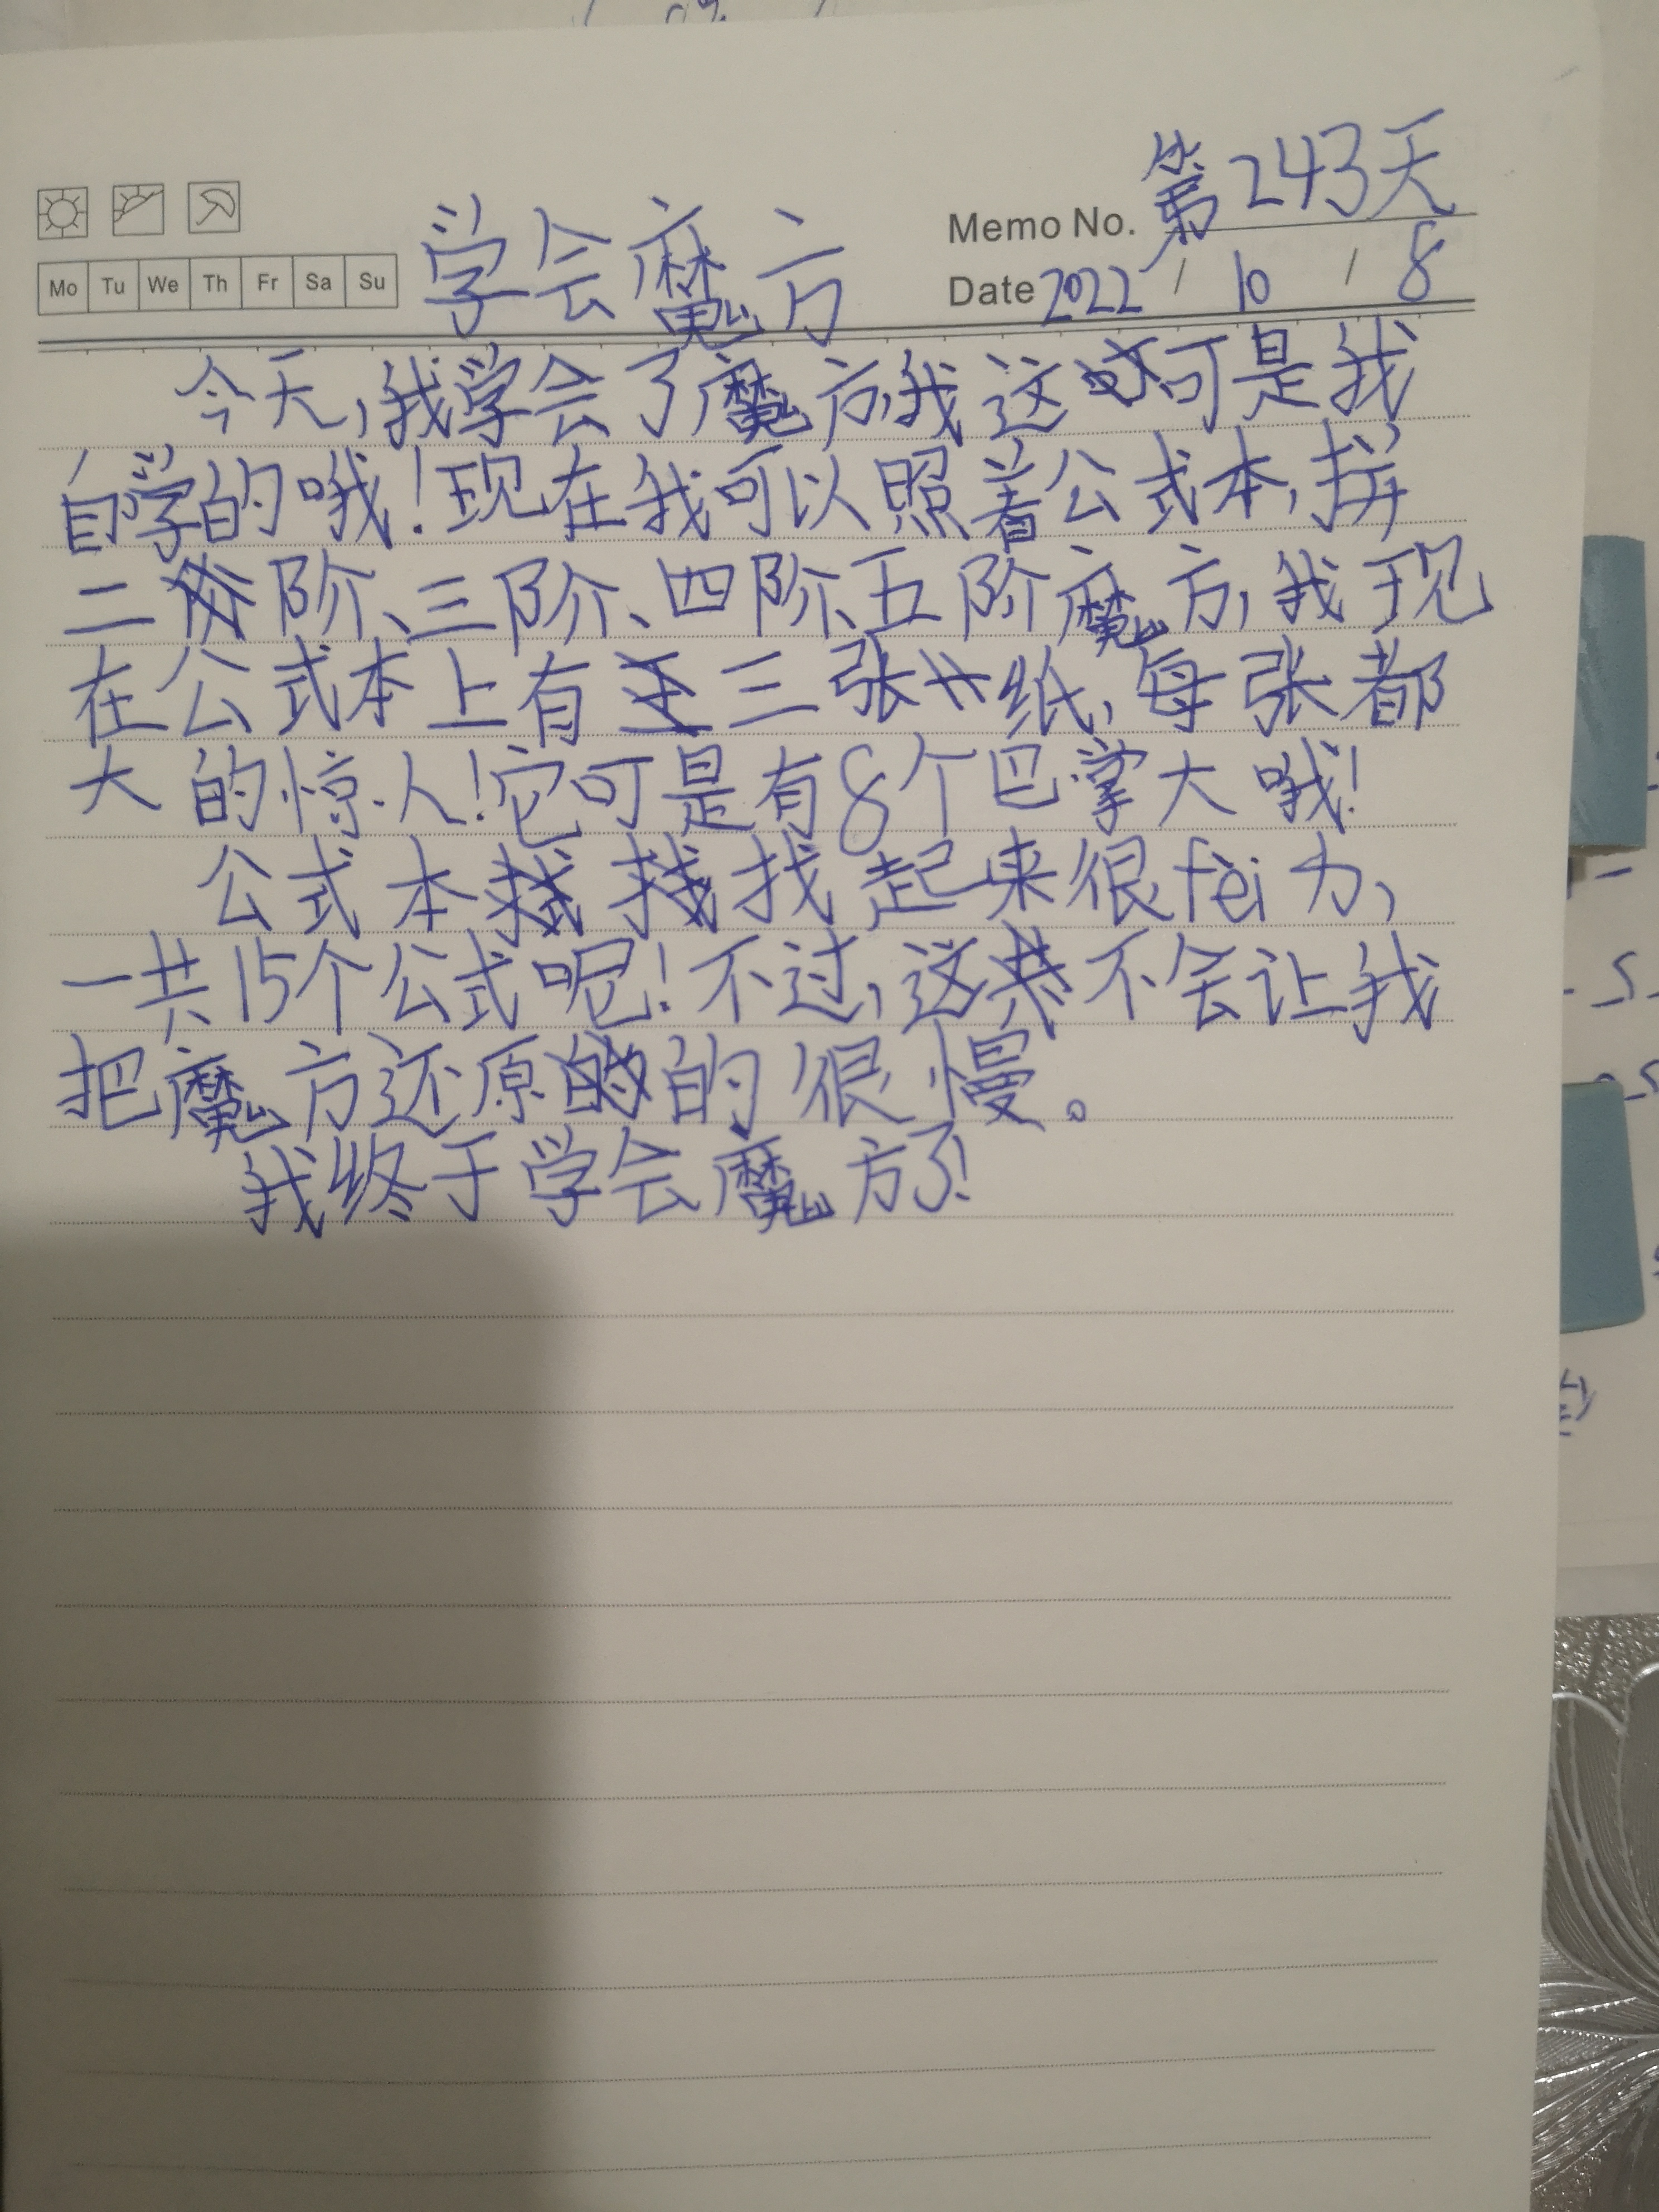 第243天
Memo No.
学会魔方
Mo Tu We Th Fr Sa Su
Date 2022 / 10 / 8
今天,我学会了魔方,我这可是我
自学的哦!现在我可以照着公式本,拼
二阶、三阶、四阶、五阶魔方,我现
在公式本上有三张纸,每张都
大的惊人!它可是有8个巴掌大哦!
公式本找起来很fèi力,
一共15个公式呢!不过,这不会让我
把魔方还原的很慢。
我终于学会魔方了!